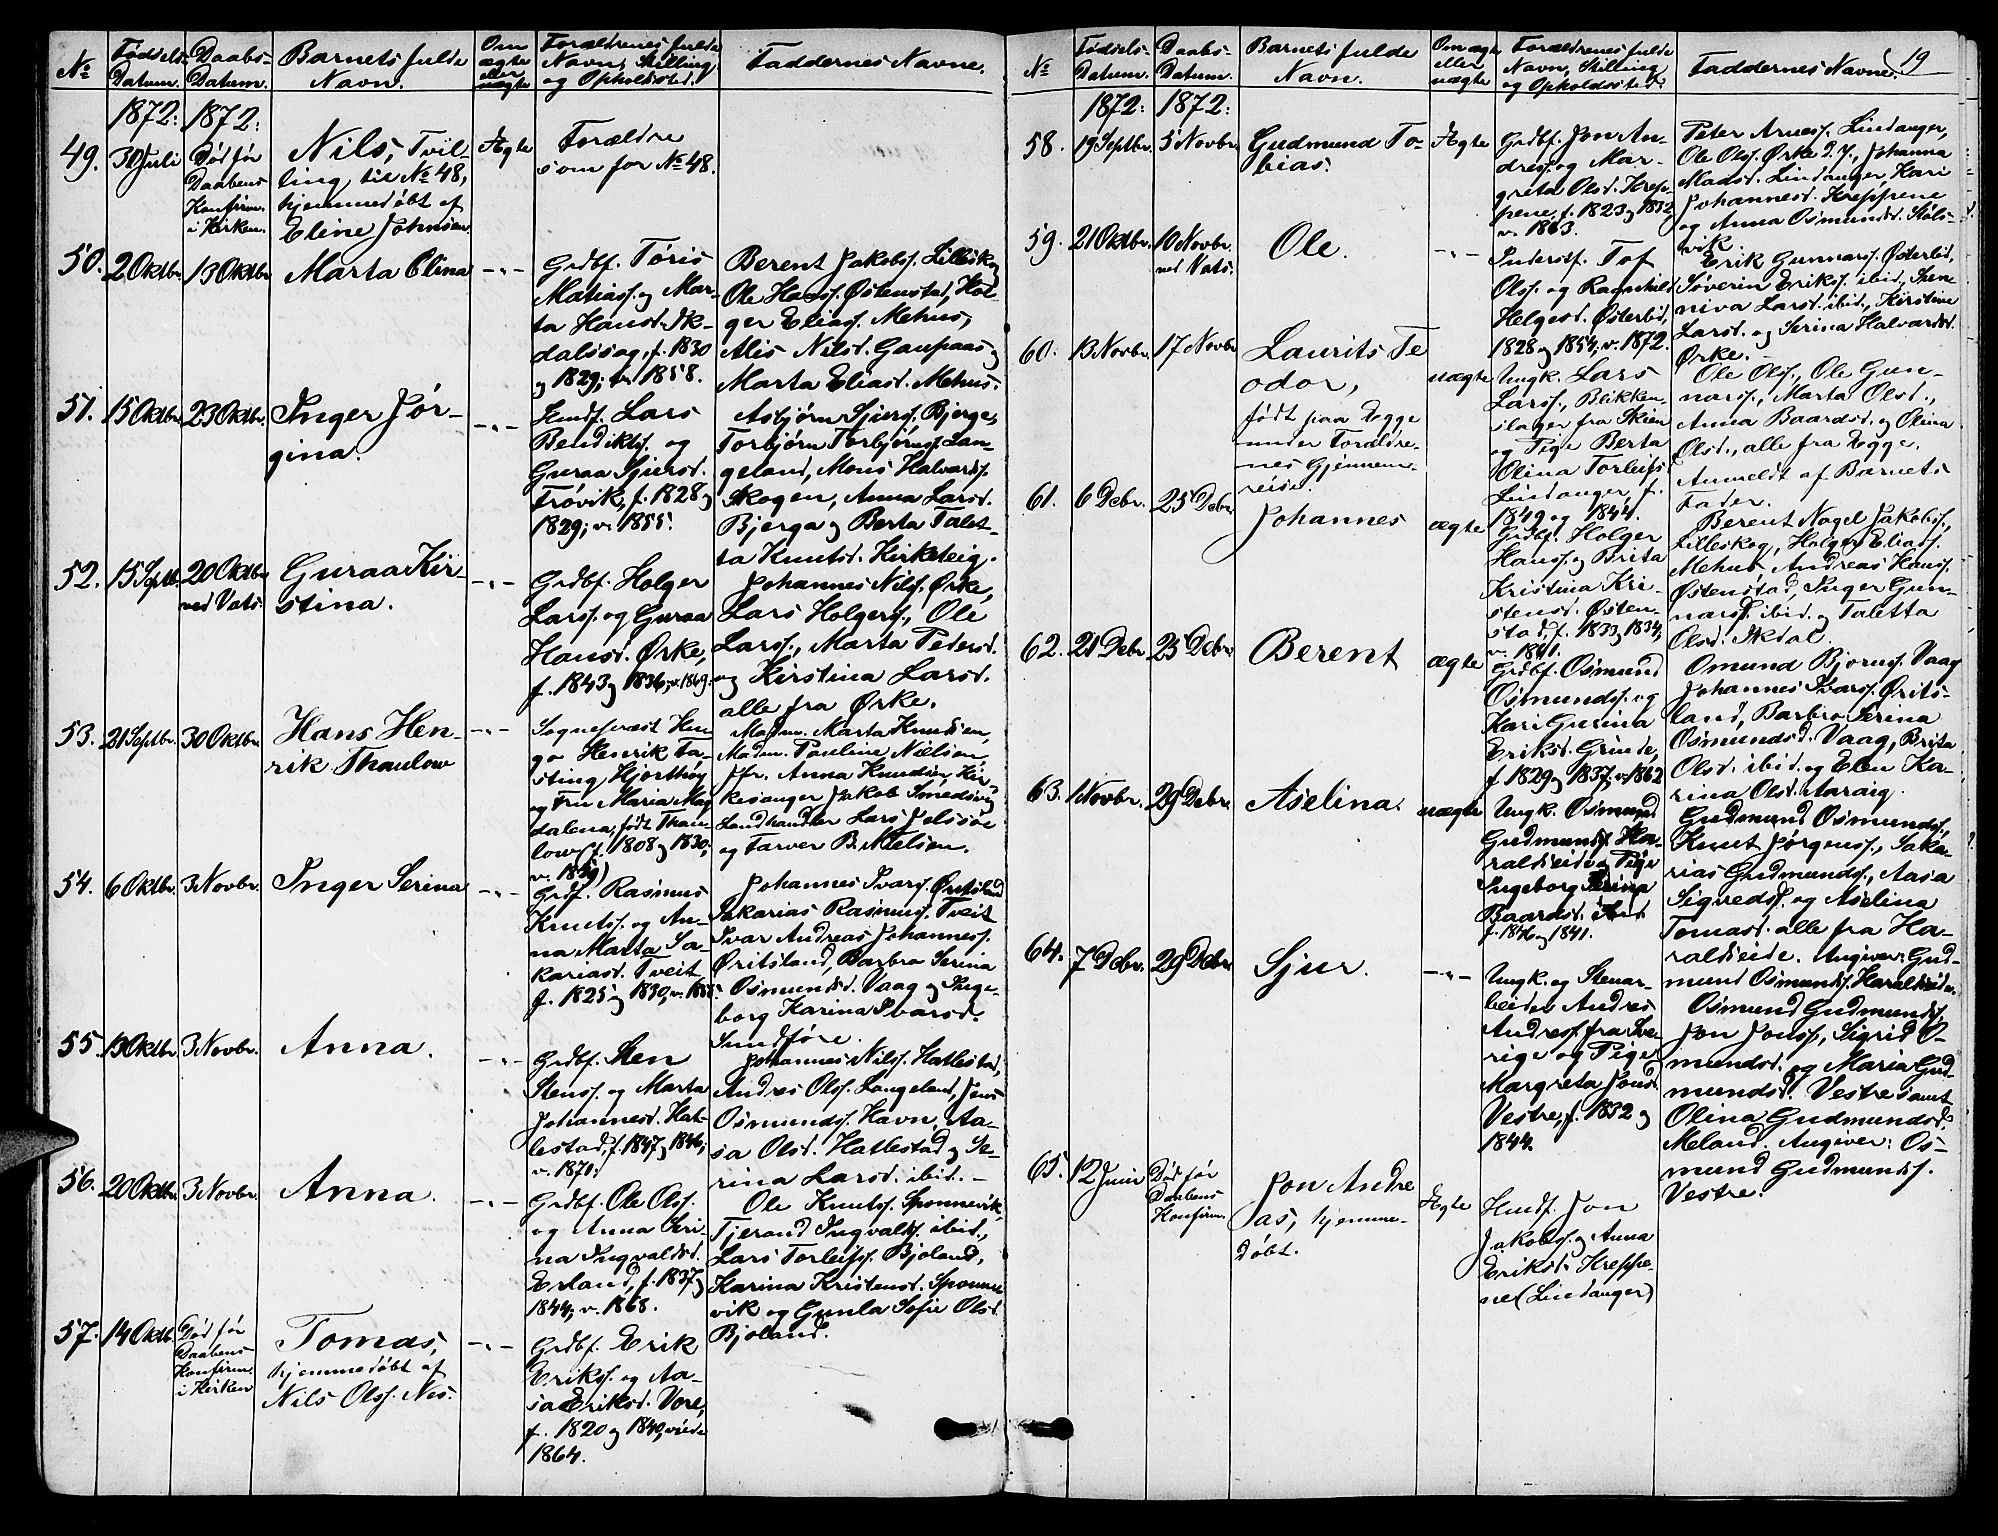 No
Fødsels-
Datum.
Daabs-
Datum.
Barnets fulde
Navn.
Om
ægte
eller
uægte
Forældrenes fulde
Navn, Stilling
og Opholdssted.
Faddernes Navne.
1872:
1872:
49.
30 Juli
Død før
Daabens
Konfirm.
i Kirken.
Nils, Tvil-
ling til No 48,
hjemmedøbt af
Eline Johnsen
Ægte
Forældre
som for No 48.
50.
2 Oktbr.
13 Oktbr.
Marta Olina
-"-
Grdbf. Tøris
Matiass. og Mar-
ta Hansd. Sk-
dalssag, f. 1830
og 1829; v. 1858.
Berent Jakobss. Lilleskog
Ole Hanss. Østenstad, Hol-
ger Eliass. Mehus,
Alis Nilsd. Gaupaas og
Marta Eliasd. Mehus.
51.
15 Oktbr.
23 Oktbr.
Inger Jør-
gina.
-"-
Husdf. Lars
Bendiktss. og
Guraa Sjursd.
Trøvik, f. 1828 og
1829; v. 1855.
Asbjørn Sjurss. Bjerge,
Torbjørn Torbjørnss. Lan-
geland, Mons Halvards.
Skogen, Anna Larsd.
Bjerga og Berta Talet-
ta Knutsd. Kirketeig.
52.
15 Septb.
20 Oktbr.
ved Vats.
Guraa Kir-
stina.
-"-
Grdbf. Holger
Larss. og Guraa
Hansd. Ørke,
f. 1843 og 1836; v. 1869.
Johannes Nilss. Ørke,
Lars Holgerss., Ole
Larss., Marta Pedersd.
og Kirstina Larsd.
alle fra Ørke.
53.
21 Septbr.
30 Oktbr.
Hans Hen-
rik Thaulow
-"-
Sognepræst Hu-
go Henrik Fa-
sting Hjorthøy
og Fru Maria Mag
dalena, født Thau-
low (f. 1808 og 1830;
v. 1859)
Madm. Marta Knudsen,
Madm. Pauline Nielsen,
Jfr. Anna Knudsen, Kir-
kesanger Jakob Smedsvig
Landhandler Lars Jelssøe
og Farver B. Nielsen.
54.
6 Oktbr.
3 Novbr.
Inger Serina
-"-
Grdf. Rasmus
Knutss. og An-
na Marta Sa-
kariasd. Tveit
f. 1825 og 1830, v. 1855.
Johannes Ivarss. Øritsland
Sakarias Rasmuss. Tveit
Ivar Andreas Johanness.
Øritsland, Barbro Serina
Osmundsd. Vaag og Inge-
borg Karina Ivarsd.
Sundføre.
55.
13 Oktbr.
3 Novbr.
Anna.
-"-
Grdbf. Sten
Stenss. og Marta
Johannesd. Hat-
lestad, f. 1847 og 1846,
v. 1870.
Johannes Nilss. Hatlestad,
Andres Olss. Langeland, Jens
Osmundss. Havn, Aa-
sa Olsd. Hatlestad og Se-
rina Larsd. ibid. -
56.
20 Oktbr.
3 Novbr.
Anna.
-"-
Grdbf. Ole Olss.
og Anna Seri-
na Ingvaldsd.
Erland, f. 1837 og
1844; v. 1868.
Ole Knutss. Sponnevik,
Tjerand Ingvalds. ibid.,
Lars Torleifss. Bjoland,
Karina Kristensd. Sponne
vik og Gunla Sofie Olsd.
Bjoland.
57.
14 Oktbr.
Død før
Daabens
Konfirm.
i Kirken
Tomas,
hjemmedøbt af
Nils Olss. Nes.
-"-
Grdbf. Erik
Erikss. og Aa-
sa Eriksd. Vore,
f. 1820 og 1840, viede
1864.
19
No
Fødsels-
Datum.
Daabs-
Datum.
Barnets fulde
Navn.
Om ægte
eller
uægte
Forældrenes fulde
Navn, Stilling
og Opholdssted.
Faddernes Navne.
1872:
1872:
58.
19 Septbr.
5 Novbr.
Gudmund To-
bias.
Ægte
Grdbf. Jon An-
dress. og Mar-
greta Olsd. Krep-
pene, f. 1823 og 1832,
v. 1863.
Peter Arness. Lindanger,
Ole Olss. Ørke d.y., Johanna
Madsd. Lindanger, Kari
Johannesd. Kreppene
og Anna Osmundsd. Støls-
vik.
59.
21 Oktbr.
10 Novbr.
ved Vats.
Ole.
-"-
Inderstf. Tof
Olss. og Ragnhild
Helgesd. Østerbø,
1828 og 1854; v. 1872.
Erik Gunnarss. Østerbø,
Søverin Erikss. ibid., Sene
niva Larsd. ibid., Kirstine
Larsd. og Serina Halvardsd.
Ørke.
60.
13 Novbr.
17 Novbr
Laurits Te
odor,
født paa Egge
under Forældre-
nes Gjennem-
reise.
uægte
Ungk. Lars
Larss., Blikken-
slager fra Skien
og Pige Berta
Olina Torleifs.
Lindanger, f.
1849 og 1844.
Ole Olss., Ole Gun-
narss., Marta Olsd.,
Anna Baardsd. og Olina
Olsd., alle fra Egge.
Anmeldt af Barnets
Fader.
61.
6 Debr.
25 Debr.
Johannes
ægte
Grdbf. Holger
Hanss. og Brita
Kristina Kri-
stensd. Østen-
stad, f. 1833 og 1834,
v. 1861.
Berent Nagel Jakobss.
Lilleskog, Holger Eliass.
Mehus Andreas Hanss.
Østenstad, Inger Gun-
narsd. ibid. og Taletta
Olsd. Skdal.
62.
21 Debr.
25 Debr.
Berent
ægte
Grdbf. Osmund
Osmundss. og
Kari Gurina
Eriksd. Grinde,
f. 1829 og 1837; v. 1862
Omund Bjørnss. Vaag
Johannes Ivarss. Ørits-
land, Barbro Serina
Osmundsd. Vaag, Brita
Olsd. ibid. og Elen Ka-
rina Olsd. Aarag.
63.
1 Novbr.
29 Debr.
Aselina.
uægte
Ungk. Osmund
Gudmundss. Ha-
raldseide og Pige
Ingeborg Serina
Baardsd.
f. 1846 og 1841.
Gudmund Osmundss.,
Knut Jørgenss., Saka-
rias Gudmundss., Aasa
Sigvedsd. og Aselina
Tomasd. alle fra Ha-
raldseide. Angiver: Gud-
mund Osmundss. Haraldseide.
64.
7 Debr.
29 Debr.
Sjur.
-"-
Ungk. og Stenar-
beider Andres
Andress. fra Sve-
rige og Pige
Margreta Jonsd.
Vestre, f. 1832 og
1844.
Osmund Gudmundss.
Jon Jonss., Sigrid O-
mundsd. og Maria Gud-
mundsd. Vestre samt
Olina Gudmundsd.
Meland. Angiver: Os-
mund Gudmundss.
Vestre.
65.
12 Juni
Død før
Daabens
Konfirm.
Jon Andre
as, hjemme-
døbt.
Ægte
Husdf. Jon
Jakobss. og Anna
Eriksd. Kreppe-
ne (Lindanger)